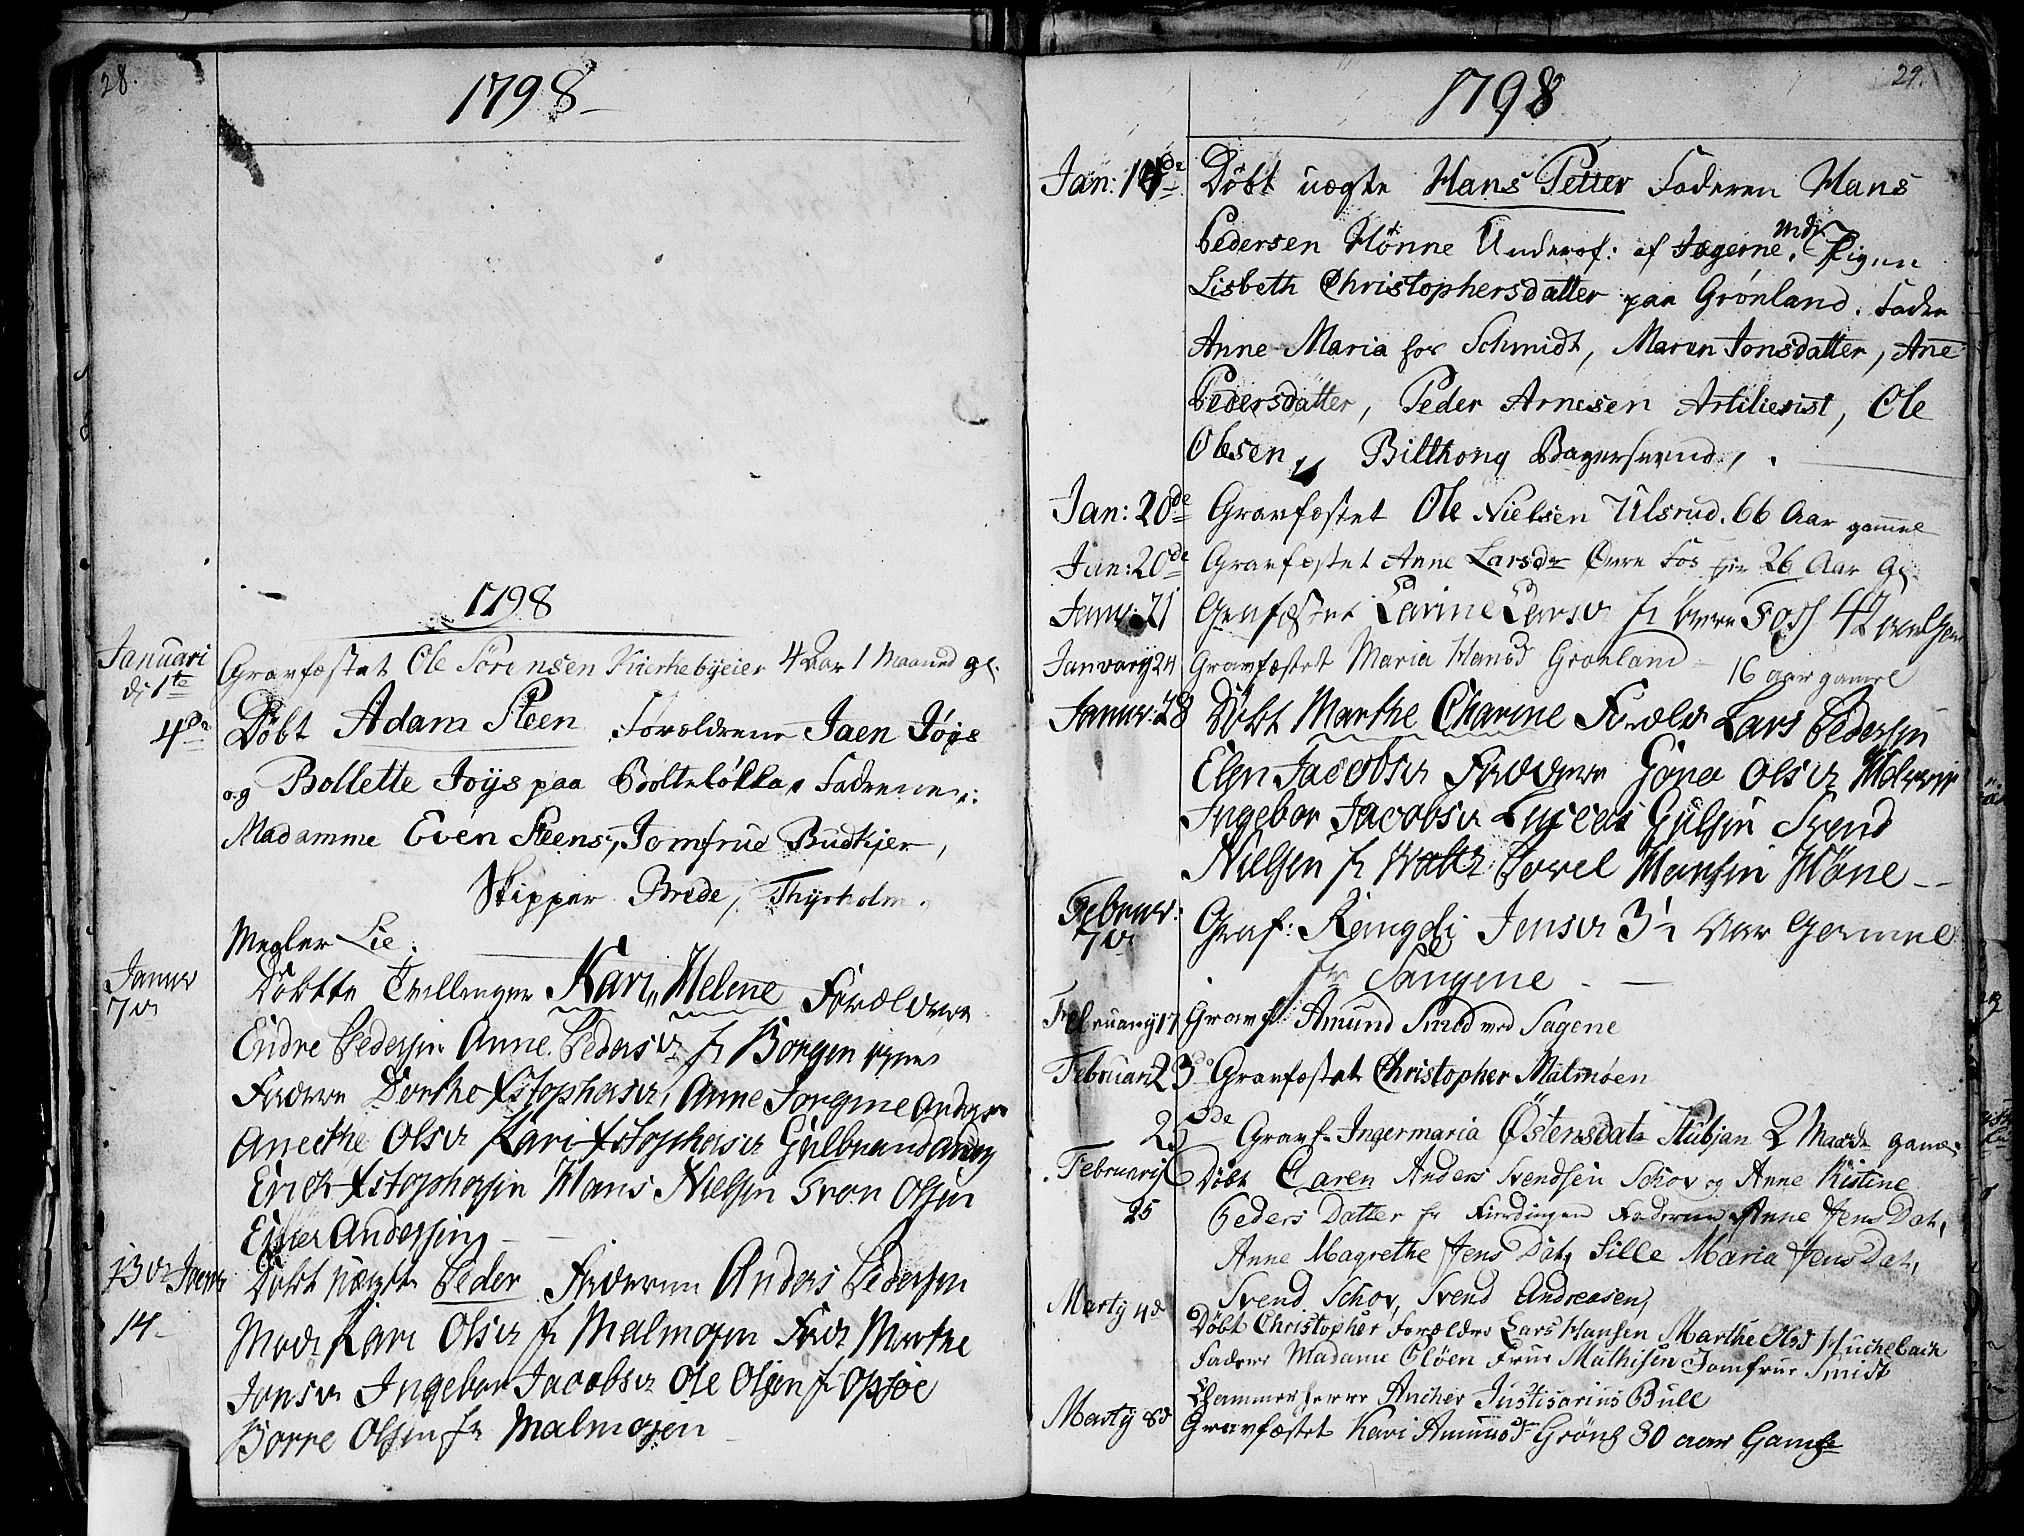 28.
1798
1798
Januari Gravfæstet Ole Sörensen Kierkebyeier 4 Aar 1 Maaned gl.
di 1te
4de Döbt Adam Steen Forældrene Jaen Jöys
og Bollette Joÿs paa Boltelökka, Fadrene:
Madamme Even Steens, Jomfrue Budkjer,
Skipper Brede, Thyrholm.
Megler Lie.
Januar Döbtte Tvillinger Kari, Helene Forældrene
7de
Endre Pedersen Anne Peders fr Borgen
Faderne Dorthe Xstophers, Anne Jorgine Anders
Anethe Ols Kari Xstophers Gulbrand
Erich Xstophersen Hans Nielsen Tron Olsen
Einer Andersen
13de Januar Döbt uægte Peder Faderen Anders Pedersen
14
Modr Kari Ols fr Malmøen Fad Marthe
Jons Ingebor Jacobs Ole Olsen fr Opsøe
Borre Olsen fr Malmøjen
29.
1798
Jan: 14de Döbt uægte Hans Petter Faderen Hans
Pedersen Hönne Underof: af Jægerne, Modr Pigen
Lisbeth Christophersdatter paa Grönland. Fadre
Anne Maria hos Schmidt, Maren Jonsdatter, Ane
Pedersdatter, Peder Arnesen Artilierist, Ole
Olsen, Bilthong Bagersvend,
Jan: 20de Gravfæstet Ole Nielsen Ulsrud. 66 Aar gammel
Jan: 20de Gravfæstet Anne Larsdr Övre Fos 26 Aar Gl.
Janv: 21 Grafæstet Carine Lars fr Övre Foss 42
January 24 Gravfæstet Maria Hansd Gronland
16 aar gamel
Januar: 28 Döbt Marthe Charine Foræld Lars Pedersen
Elen Jacobs Fadderne Gona Ols
Ingebor Jacobs Lucas Gulsen Svend
Nielsen fr Povel Hansen Höne
Februar: Graf: Rangdi Jens 3½ Aar Gammel
7de
fr Sangene
February 17 Gravf. Amund Smed ved Sagene
Februari 23 Gravfæstet Christopher Malmöen
23de Gravf. Ingermaria Östensdatr Stubjan 2 Maad gam
Februarij Döbt Caren Anders Svendsen Schov og Anne Kistine
25 Peders Datter fr Fierdingen Faderne Anne Jens Dat,
Anne Magrethe Jens Dat, Sille Maria Jens Dat,
Svend Schov, Svend Andreasen,
Marty 4d Döbt Christopher Forældre Lars Hansen Marthe Olsd Huchelbach
Fadere Madame Olöen Frue Mathisen Jomfrue Smist
Chammerherre Ancher Justisarius Bull
Marty 8d Gravfæstet Kari Amunsd Grönl 30 aar Gamle